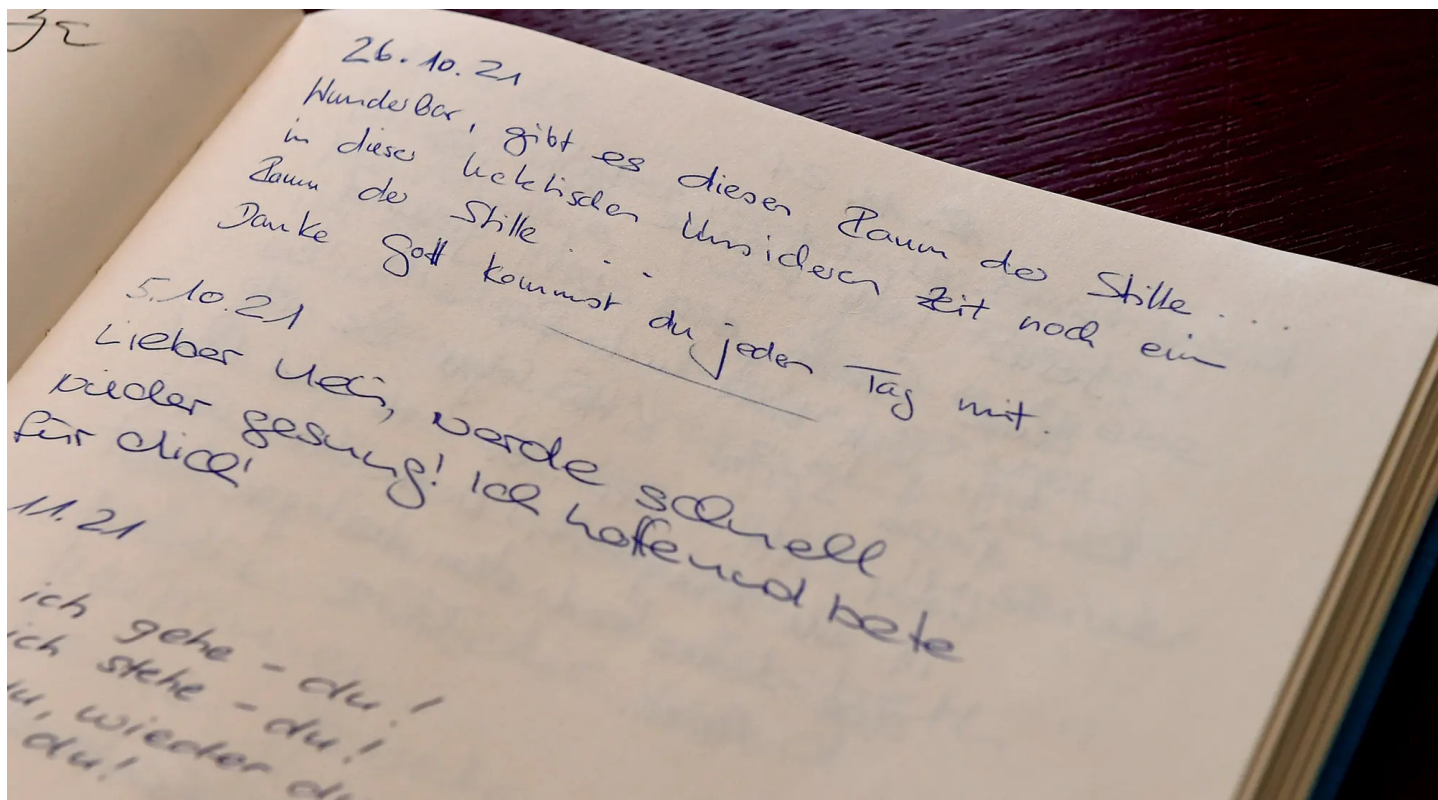 26.10.21
Wunderbar, gibt es diesen Raum der Stille....
in dieser hektischen Unsicheren Zeit noch ein
Raum der Stille...
Danke Gott kommst du jeden Tag mit.
5.10.21
Lieber werde schnell
wieder gesung! Ich hoffe und bete
für dich!
11.21
ich gehe - du!
ich stehe - du!
du, wieder du
du!